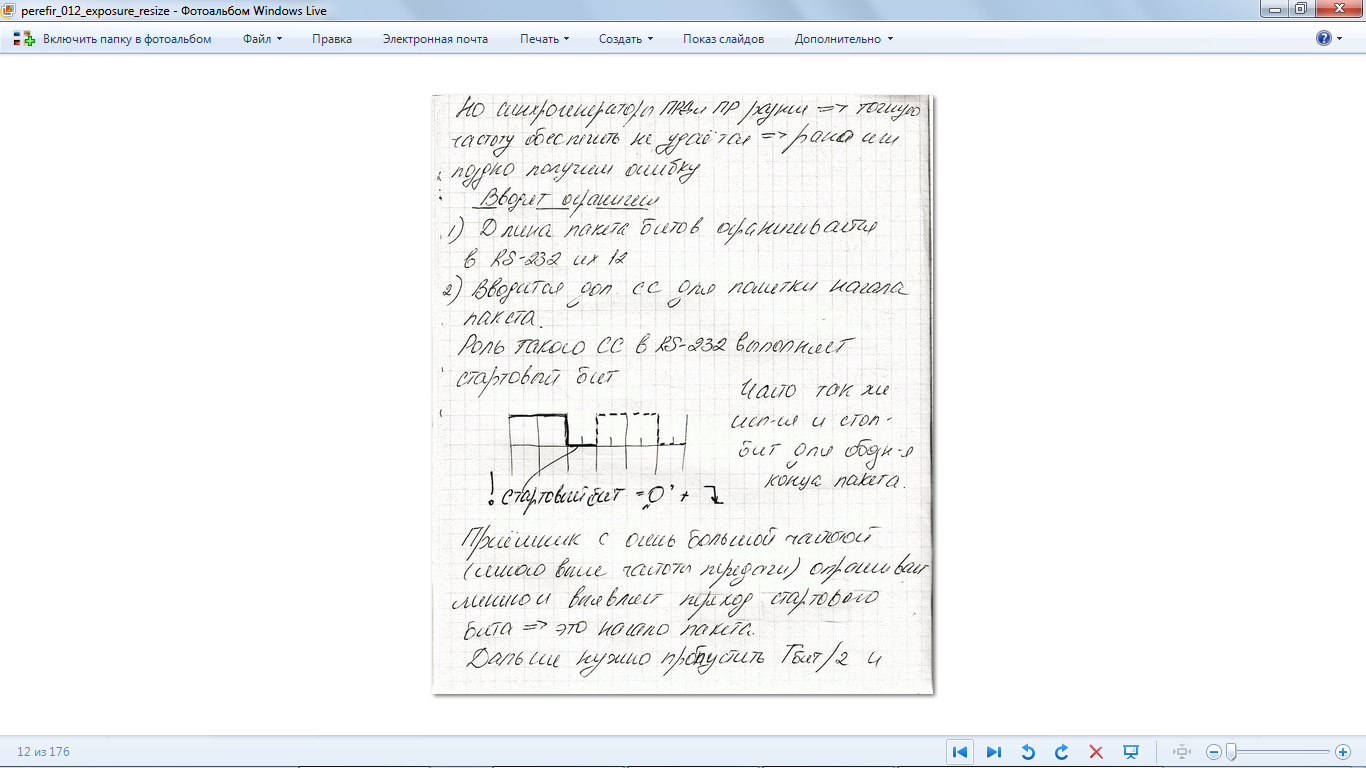 perefir_012_exposure_resize - Фотоальбом Windows Live
Включить папку в фотоальбом Файл Правка Электронная почта Печать Создать Показ слайдов Дополнительно
Но синхрогенераторы ПРД и ПР разные => точную
частоту обеспечить не удаётся => рано или
поздно получим ошибку
Вводят огранич
1) Длина пакета битов ограничивается
в RS-232 их 12
2) Вводится доп. СС для пометки начала
пакета.
Роль такого СС в RS-232 выполняет
стартовый бит
Часто так же
исп-ся и стоп-
бит для обозн-я
конца пакета.
! Стартовый бит = 0' +
Приёмник с очень большой частотой
(много выше частоты передачи) опрашивает
линию и выявляет переход стартового
бита => это начало пакета.
Дальше нужно пропустить Tбит/2 и
12 из 176